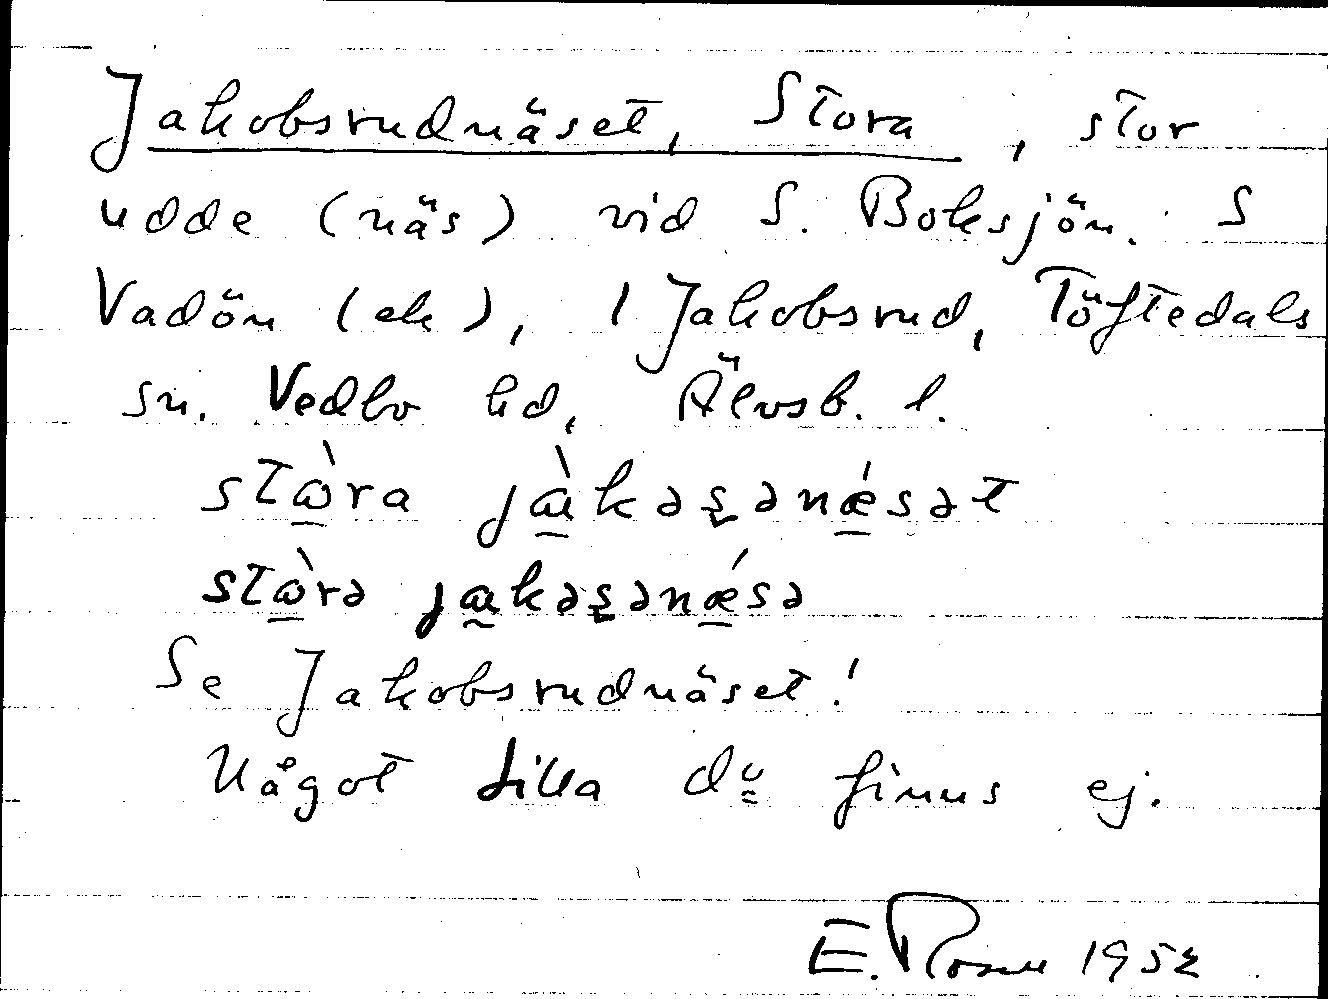 Jakobsrudnäset, Stora, stor
udde (näs) vid S. Boksjön. S
Vadön (ek), 1 Jakobsrud, Töftedals
sn. Vedbo hd, Älvsb. l.
stɷ̀ra jàkəʂənǽsət
stɷ̀rə jakəʂənǽsə
Se Jakobsrudnäset!
Något lilla do finns ej.
E. Rosen 1952